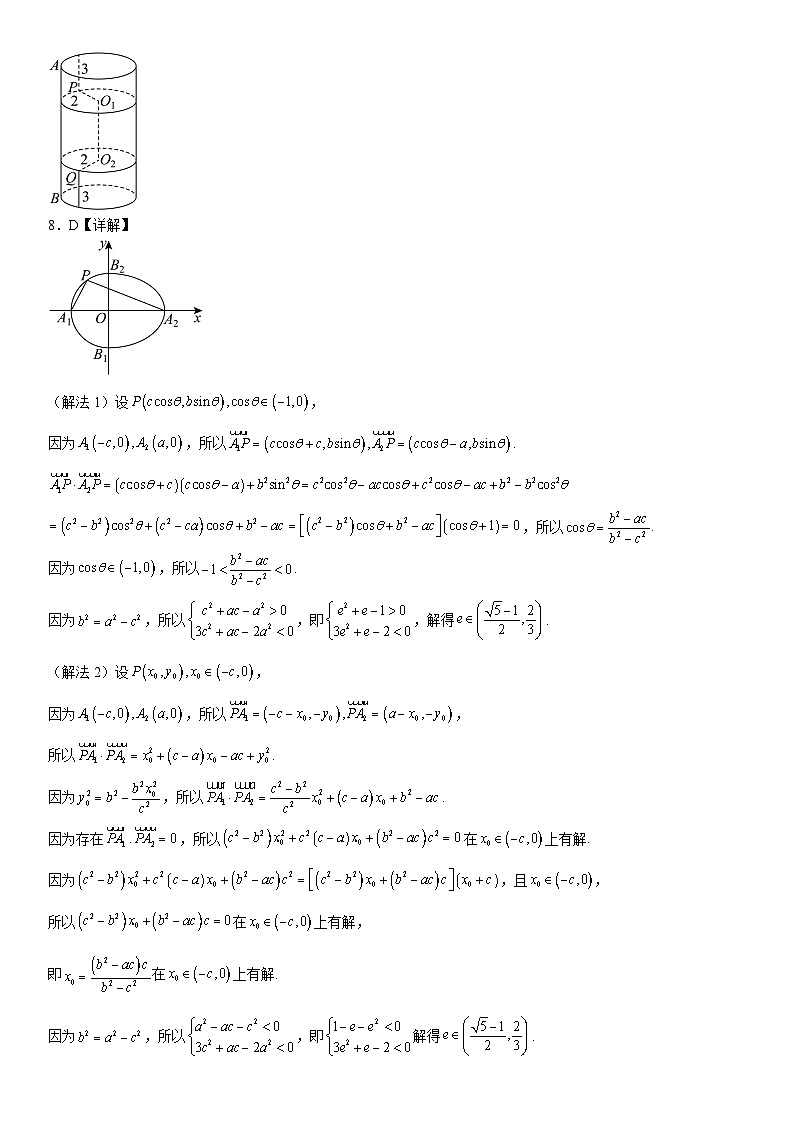 A 3
P
2 O₁
2 O₂
Q
B 3
8．D【详解】
y
B₂
P
A₁ O A₂ x
B₁
（解法 1）设 P(c cosθ,b sinθ),cosθ∈(−1,0)，
因为 A₁(−c,0),A₂(a,0)，所以 A₁P=(c cosθ+c,b sinθ),A₂P=(c cosθ−a,b sinθ)．
A₁P·A₂P=(c cosθ+c)(c cosθ−a)+b²sin²θ=c²cos²θ−ac cosθ+c²cosθ−ac+b²−b²cos²θ
=(c²−b²)cos²θ+(c²−ca)cosθ+b²−ac=[(c²−b²)cosθ+b²−ac](cosθ+1)=0，所以 cosθ=(b²−ac)/(b²−c²)．
因为 cosθ∈(−1,0)，所以 −1<(b²−ac)/(b²−c²)<0．
因为 b²=a²−c²，所以 {c²+ac−a²>0 3c²+ac−2a²<0，即 {e²+e−1>0 3e²+e−2<0，解得 e∈((√5−1)/2,2/3)．
（解法 2）设 P(x₀,y₀),x₀∈(−c,0)，
因为 A₁(−c,0),A₂(a,0)，所以 PA₁=(−c−x₀,−y₀),PA₂=(a−x₀,−y₀)，
所以 PA₁·PA₂=x₀²+(c−a)x₀−ac+y₀²．
因为 y₀²=b²−b²x₀²/c²，所以 PA₁·PA₂=(c²−b²)/c² x₀²+(c−a)x₀+b²−ac．
因为存在 PA₁·PA₂=0，所以 (c²−b²)x₀²+c²(c−a)x₀+(b²−ac)c²=0 在 x₀∈(−c,0) 上有解．
因为 (c²−b²)x₀²+c²(c−a)x₀+(b²−ac)c²=[(c²−b²)x₀+(b²−ac)c](x₀+c)，且 x₀∈(−c,0)，
所以 (c²−b²)x₀+(b²−ac)c=0 在 x₀∈(−c,0) 上有解，
即 x₀=(b²−ac)c/(b²−c²) 在 x₀∈(−c,0) 上有解．
因为 b²=a²−c²，所以 {a²−ac−c²<0 3c²+ac−2a²<0，即 {1−e−e²<0 3e²+e−2<0 解得 e∈((√5−1)/2,2/3)．